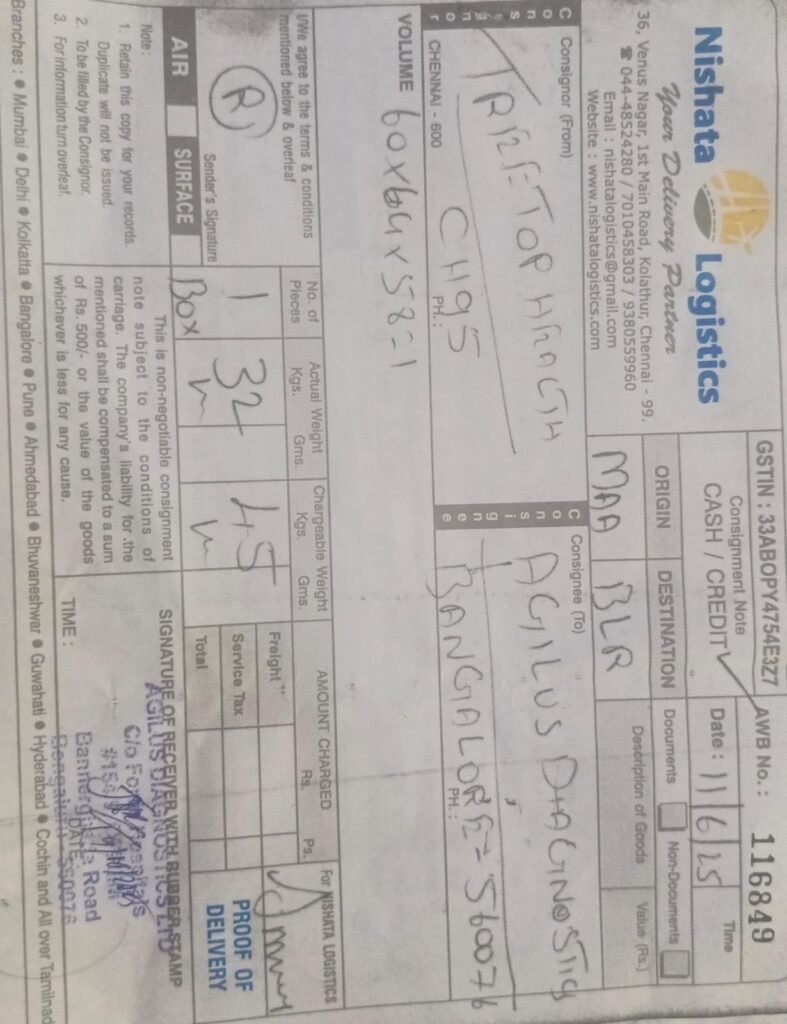 Nishata Logistics
Your Delivery Partner
36, Venus Nagar, 1st Main Road, Kolathur, Chennai - 99.
☎ 044-48524280 / 7010458303 / 9380559960
Email : nishatalogistics@gmail.com
Website : www.nishatalogistics.com
GSTIN : 33ABOPY4754E3Z7
AWB No. : 116849
Consignment Note
CASH / CREDIT
Date : 11/6/25
Time
ORIGIN
MAA
DESTINATION
BLR
Documents
Non-Documents
Description of Goods
Value (Rs.)
Consignor
Consignor (From)
TREETOP HEALTH
CH95
CHENNAI - 600
PH.:
Consignee
Consignee (To)
AGILUS DIAGNOSTICS
BANGALORE = 560076
PH.:
VOLUME 60x64x58=1
I/We agree to the terms & conditions
mentioned below & overleaf
Sender's Signature
AIR
SURFACE
No. of
Pieces
1
Box
Actual Weight
Kgs. Gms.
32
Chargeable Weight
Kgs. Gms.
45
AMOUNT CHARGED
Rs. Ps.
Freight
Service Tax
Total
For NISHATA LOGISTICS
PROOF OF
DELIVERY
Note :
1. Retain this copy for your records.
Duplicate will not be issued.
2. To be filled by the Consignor.
3. For information turn overleaf.
This is non-negotiable consignment
note subject to the conditions of
carriage. The company's liability for .the
mentioned shall be compensated to a sum
of Rs. 500/- or the value of the goods
whichever is less for any cause.
SIGNATURE OF RECEIVER WITH RUBBER STAMP
AGILUS DIAGNOSTICS LTD
C/o Hospitals
Road
Bengaluru - 560076
TIME :
DATE :
Branches : ● Mumbai ● Delhi ● Kolkatta ● Bangalore ● Pune ● Ahmedabad ● Bhuvaneshwar ● Guwahati ● Hyderabad ● Cochin and All over Tamilnad